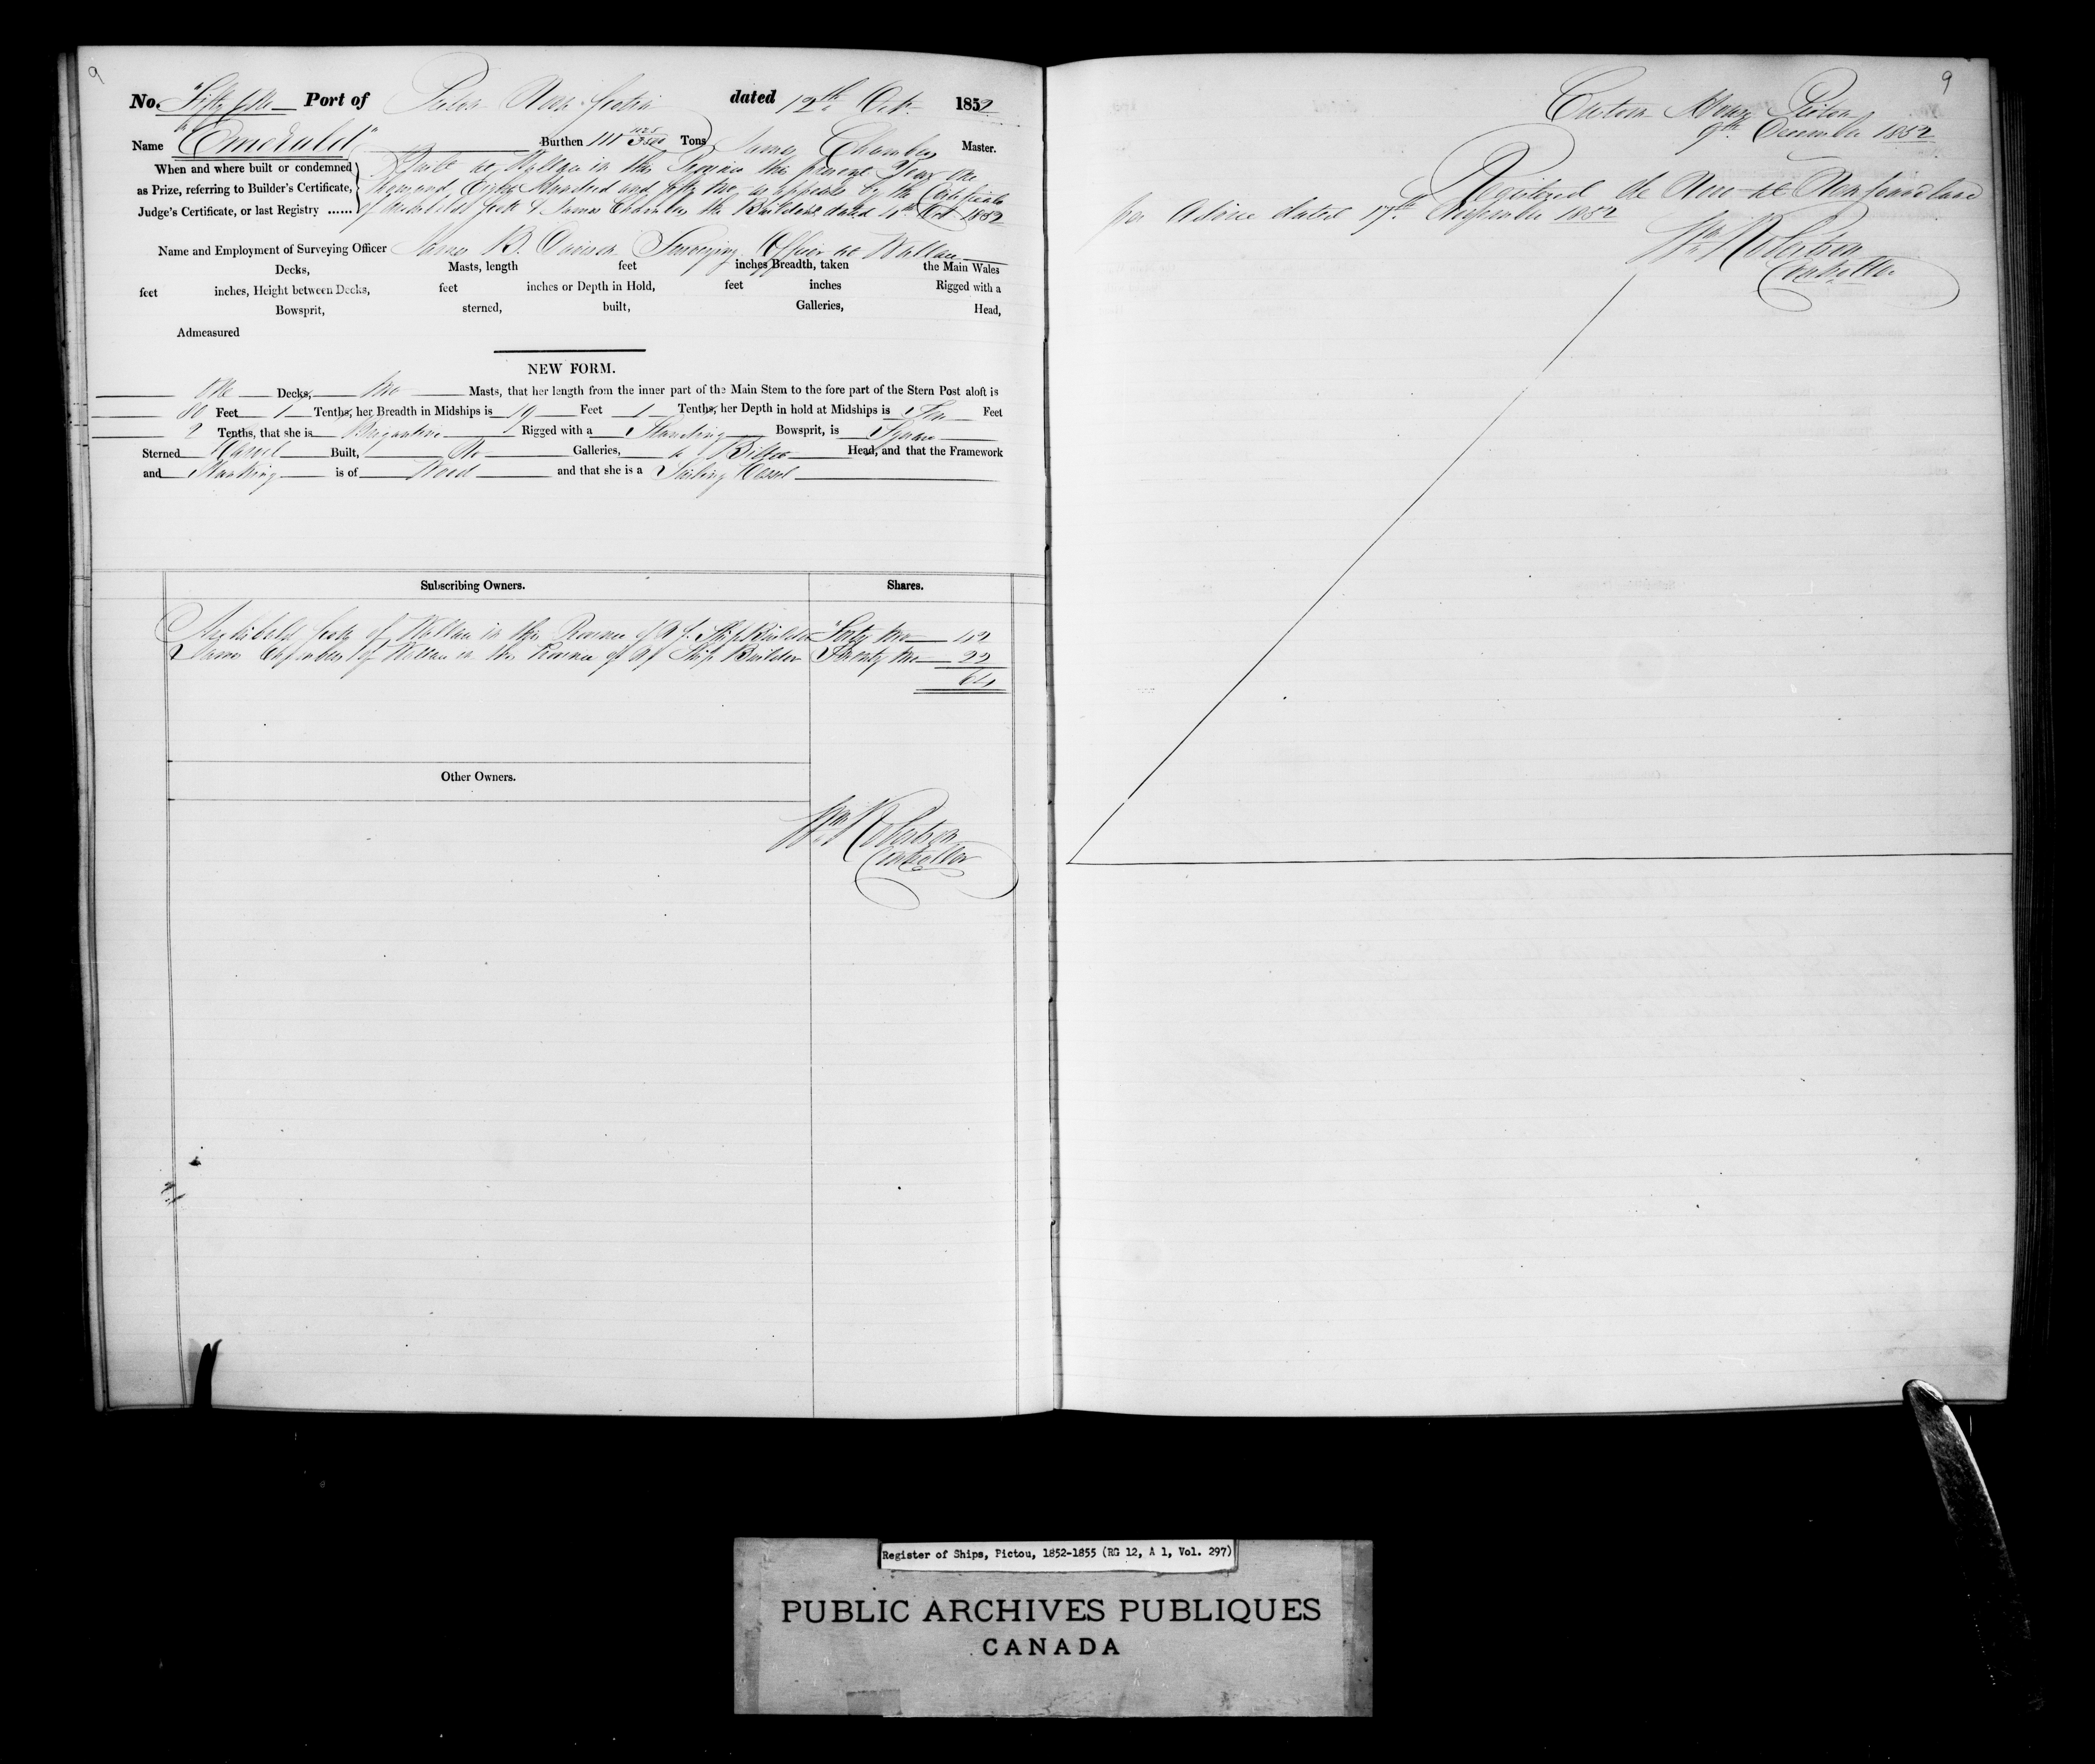 9
No. "Fifty One Port of Pictou Nova Scotia dated 12th Oct. 1852
Name "Emerald" Burthen 111 Tons James Chambers Master.
When and where built or condemned Built at Wallace in this Province this present Year One
as Prize, referring to Builder's Certificate, thousand Eight Hundred and fifty two, as appears by the Certificate
Judge's Certificate, or last Registry ...... of Archibald Scott & James Chambers the Builders dated 4th Oct 1852
Name and Employment of Surveying Officer James B. Davison Surveying Officer at Wallace
Decks, Masts, length feet inches Breadth, taken the Main Wales
feet inches, Height between Decks, feet inches or Depth in Hold, feet inches Rigged with a
Bowsprit, sterned, built, Galleries, Head,
Admeasured
NEW FORM.
One Decks, two Masts, that her length from the inner part of the Main Stem to the fore part of the Stern Post aloft is
80 Feet 1 Tenths, her Breadth in Midships is 19 Feet 1 Tenths, her Depth in hold at Midships is Ten Feet
2 Tenths, that she is Brigantine Rigged with a Standing Bowsprit, is Square
Sterned Carvel Built, No Galleries, a Billet Head, and that the Framework
and Planking is of Wood and that she is a Sailing Vessel
Subscribing Owners. Shares.
Archibald Scott of Wallace in this Province of N S. Ship Builder "Forty two 42
James Chambers of Wallace in this Province of N S Ship Builder Twenty two 22
64
Other Owners.
Wm Robertson
Controller
9
Custom House Pictou
9th December 1852
Registered de Novo at Newfoundland
per Advice dated 17th November 1852
Wm Robertson
Controller
Register of Ships, Pictou, 1852-1855 (RG 12, A 1, Vol. 297)
PUBLIC ARCHIVES PUBLIQUES
CANADA